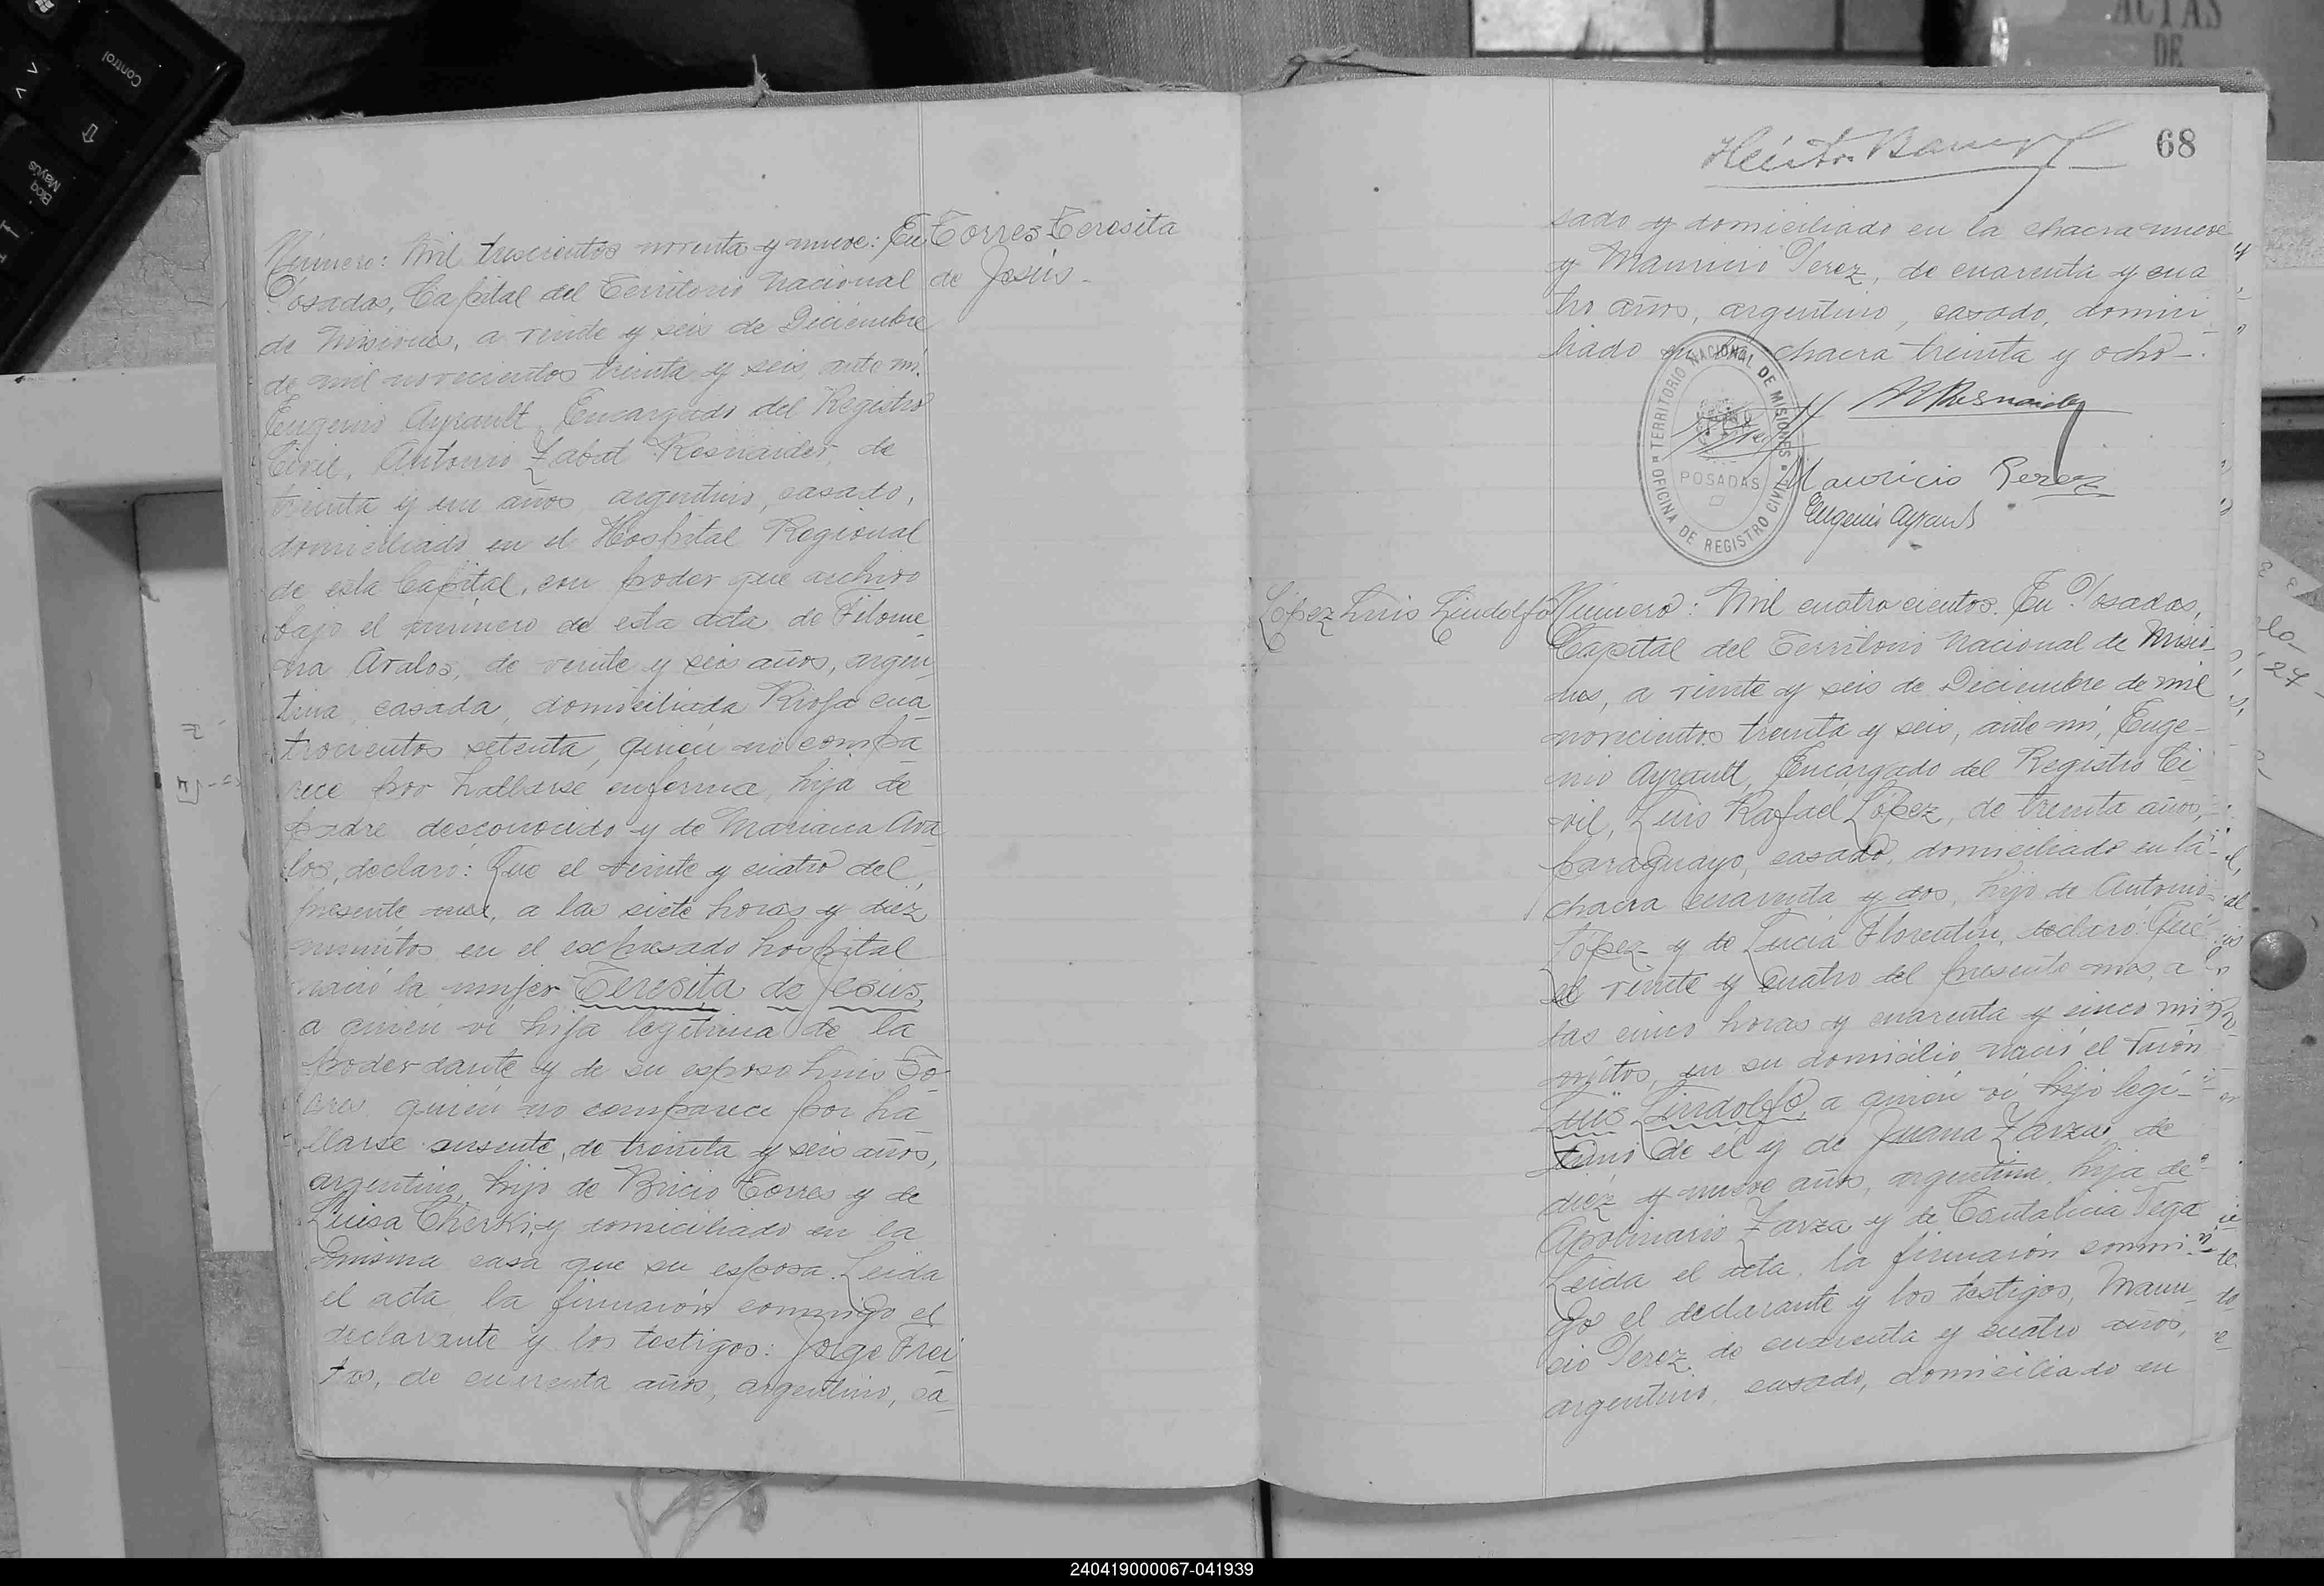 Torres Teresita
de Jesús -
Número: Mil trescientos noventa y nueve: En
Posadas, Capital del Territorio Nacional
de Misiones, a veinte y seis de Diciembre
de mil novecientos treinta y seis, ante mí,
Eugenio Ayrault, Encargado del Registro
Civil, Antonio Zabat Resnaider, de
treinta y un años, argentino, casado,
domiciliado en el Hospital Regional
de esta Capital, con poder que archivo
bajo el número de esta acta de Filome-
na Avalos, de veinte y seis años, argen-
tina, casada, domiciliada Rioja cua-
trocientos setenta, quién no compa-
rece por hallarse enferma, hija de
padre desconocido y de Mariana Ava-
los, declaró: Que el veinte y cuatro del
presente mes, a las siete horas y diez
minutos, en el expresado hospital
nació la mujer Teresita de Jesús,
a quién ví hija legítima de la
poderdante y de su esposo Luis To-
rres, quién no comparece por ha-
llarse ausente, de treinta y seis años,
argentino, hijo de Bricio Torres y de
Luisa Cherki, y domiciliado en la
misma casa que su esposa. Leida
el acta, la firmarón conmigo el
declarante y los testigos: Jorge Frei-
tas, de cuarenta años, argentino, ca-
68
sado y domiciliado en la chacra nueve
y Mauricio Perez, de cuarenta y cua-
tro años, argentino, casado, domici-
liado en la chacra treinta y ocho-.
TERRITORIO NACIONAL DE MISIONES
POSADAS
OFICINA DE REGISTRO CIVIL
Mauricio Perez
Eugenio Ayrault
López Luis Lindolfo
Número: Mil cuatrocientos. En Posadas,
Capital del Territorio Nacional de Misio-
nes, a veinte y seis de Diciembre de mil
novecientos treinta y seis, ante mí, Euge-
nio Ayrault, Encargado del Registro Ci-
vil, Luis Rafael López, de treinta años,
paraguayo, casado, domiciliado en la
chacra cuarenta y dos, hijo de Antonio
López y de Lucía Florentin, declaró: Que
el veinte y cuatro del presente mes, a
las cinco horas y cuarenta y cinco mi-
nutos, en su domicilio nació el varón
Luis Lindolfo, a quién ví hijo legí-
timo de el y de Juana Zarza, de
diez y nueve años, argentina, hija de
Apolinario Zarza y de Cantalicia Vega
Leida el acta, la firmarón conmi-
go el declarante y los testigos, Mauri-
cio Perez, de cuarenta y cuatro años,
argentino, casado, domiciliado en
ACTAS
DE
Control
Bloq
Mayús
240419000067-041939